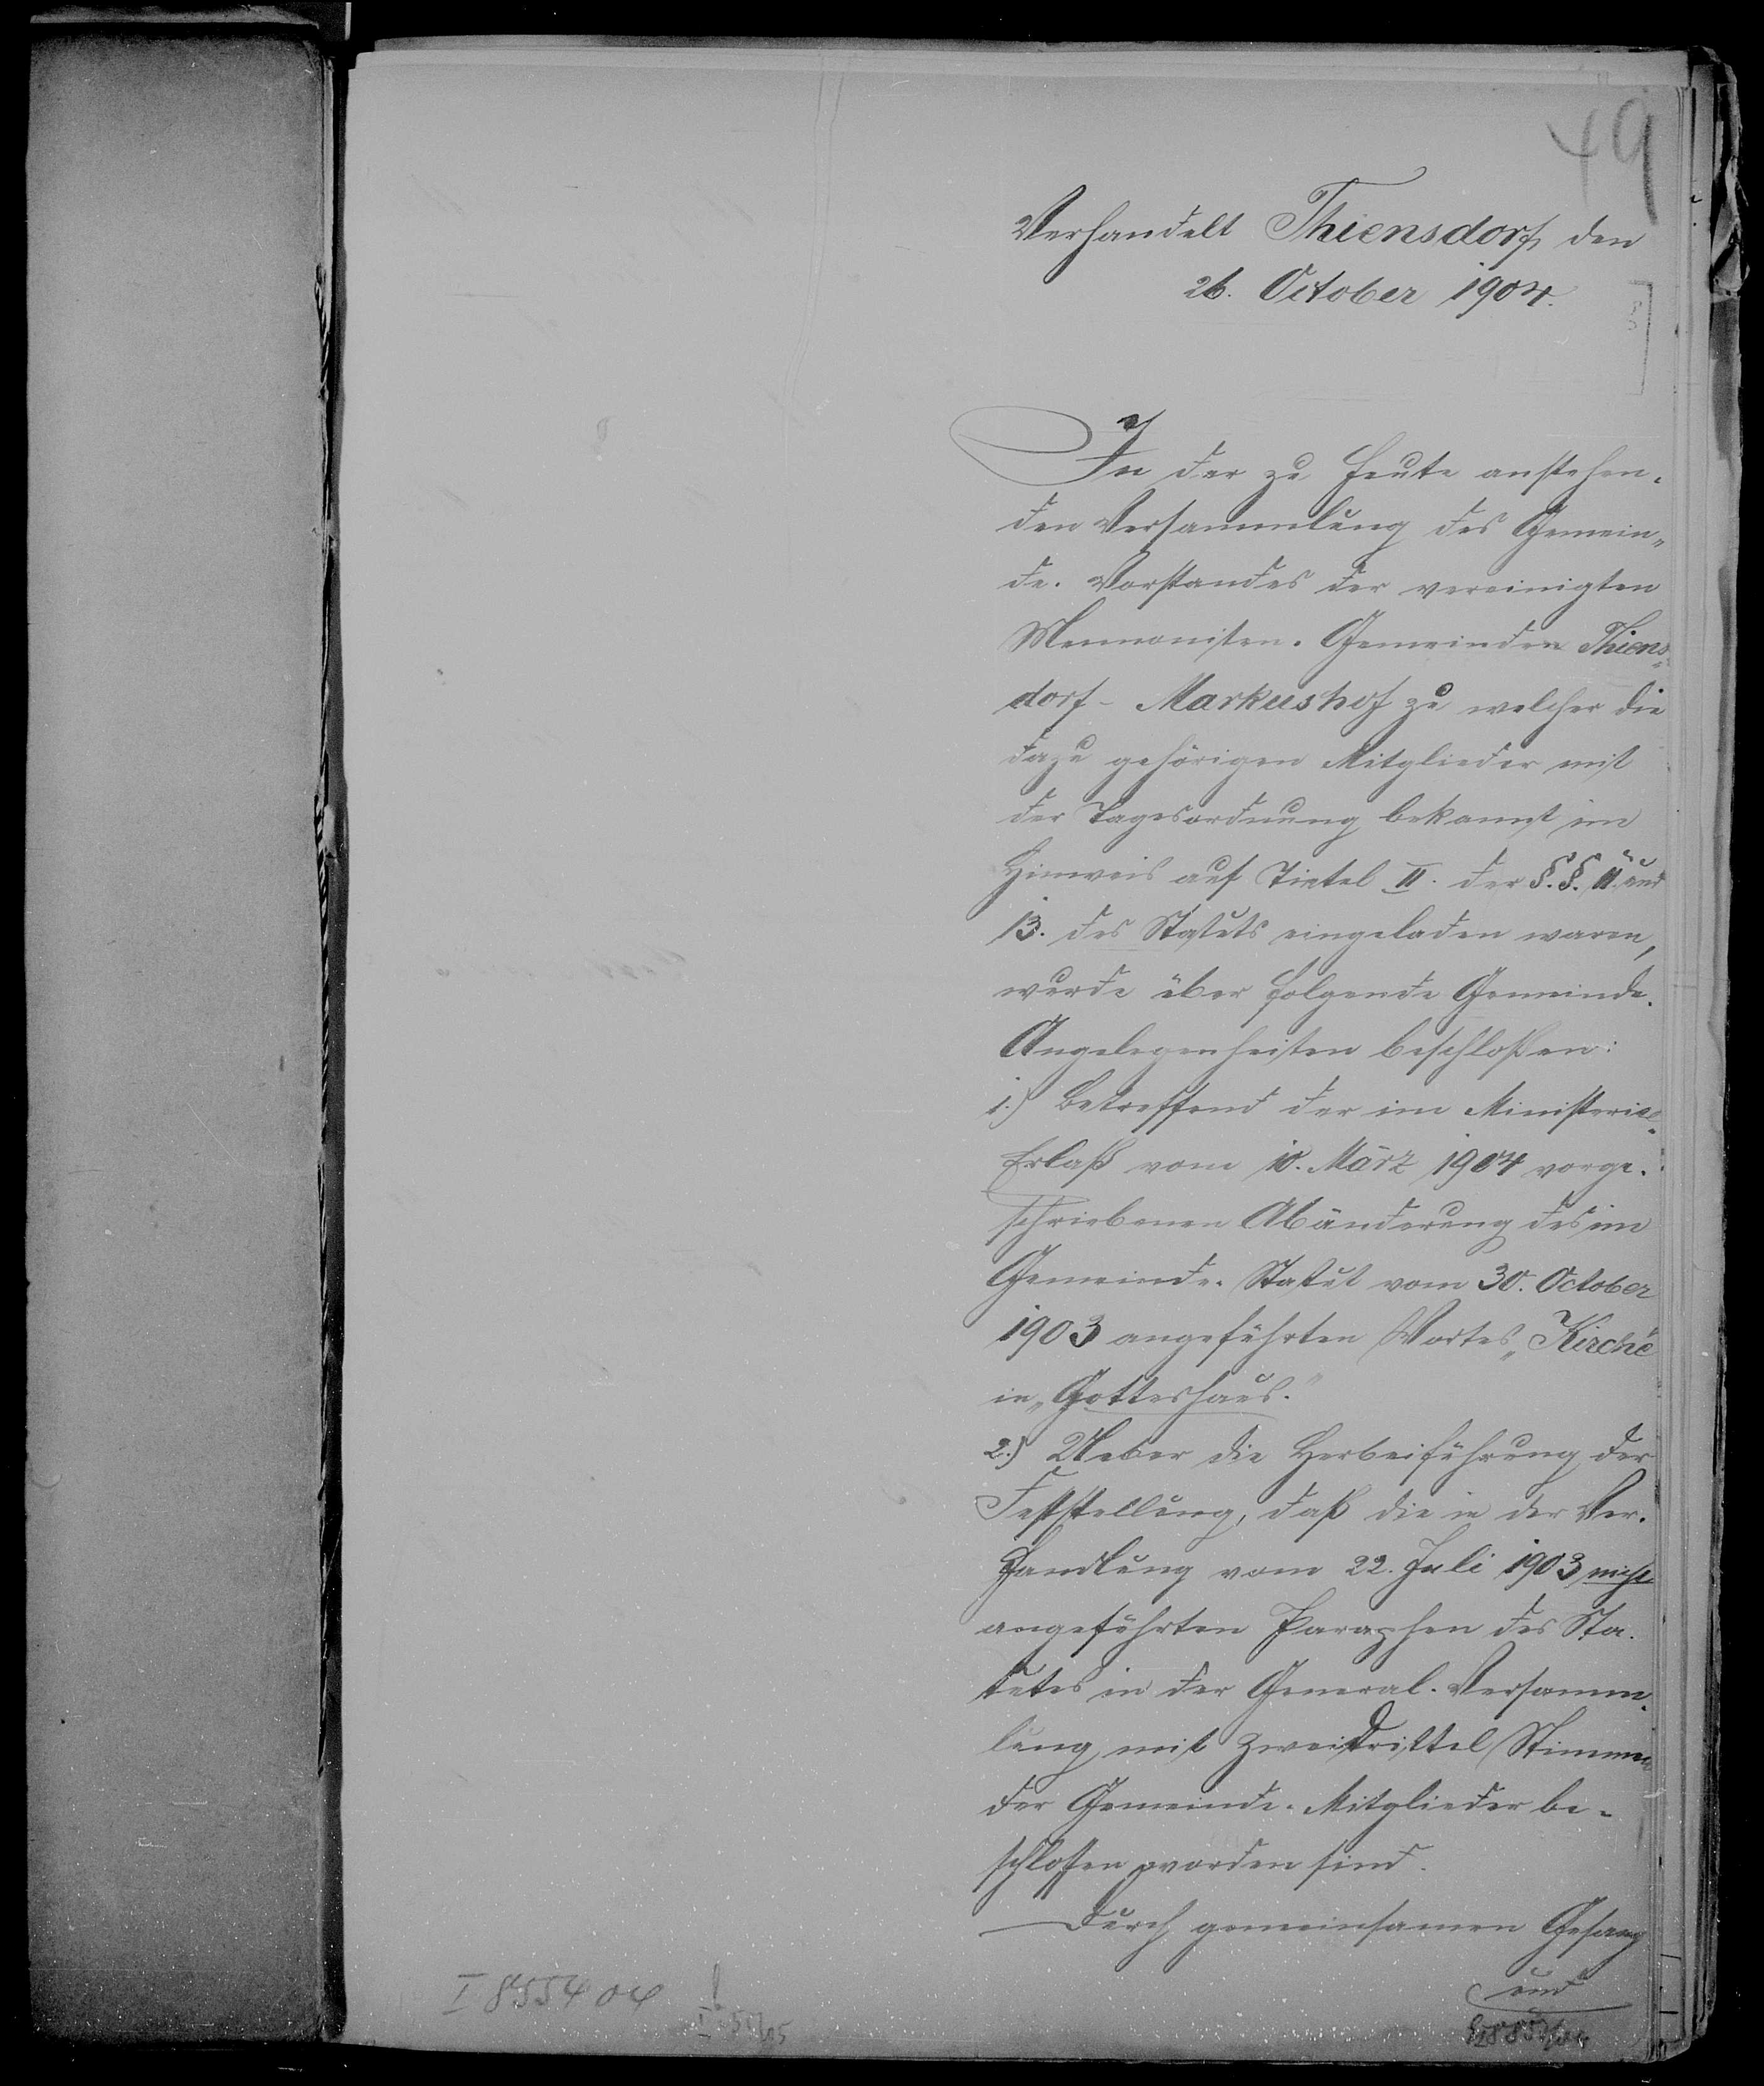 49
Verhandelt Thiensdorf, den
26. October 1904.
In der zu heute anstehen-
den Versammlung des Gemein-
de-Vorstandes der vereinigten
Mennoniten-Gemeinden Thiens-
dorf-Markushof zu welcher die
dazu gehörigen Mitglieder mit
der Tagesordnung bekannt im
Hinweis auf Tietel II. der §.§. 11. und
13. des Statuts eingeladen waren,
wurde über folgende Gemeinde-
Angelegenheiten beschloßen:
1.) Betreffend der im Ministerial-
Erlaß vom 10. März 1904 vorge-
schriebenen Abänderung des im
Gemeinde-Statut vom 30. October
1903 angeführten Wortes „Kirche"
in „Gotteshaus."
2.) Ueber die Herbeiführung der
Feststellung, daß die in der Ver-
handlung vom 22. Juli 1903 nicht
angeführten Paraphen des Sta-
tutes in der General-Versamm-
lung mit zweidrittel Stimmen
der Gemeinde-Mitglieder be-
schlossen worden sind.
Durch gemeinsamen Gesang
und
I 8554 04